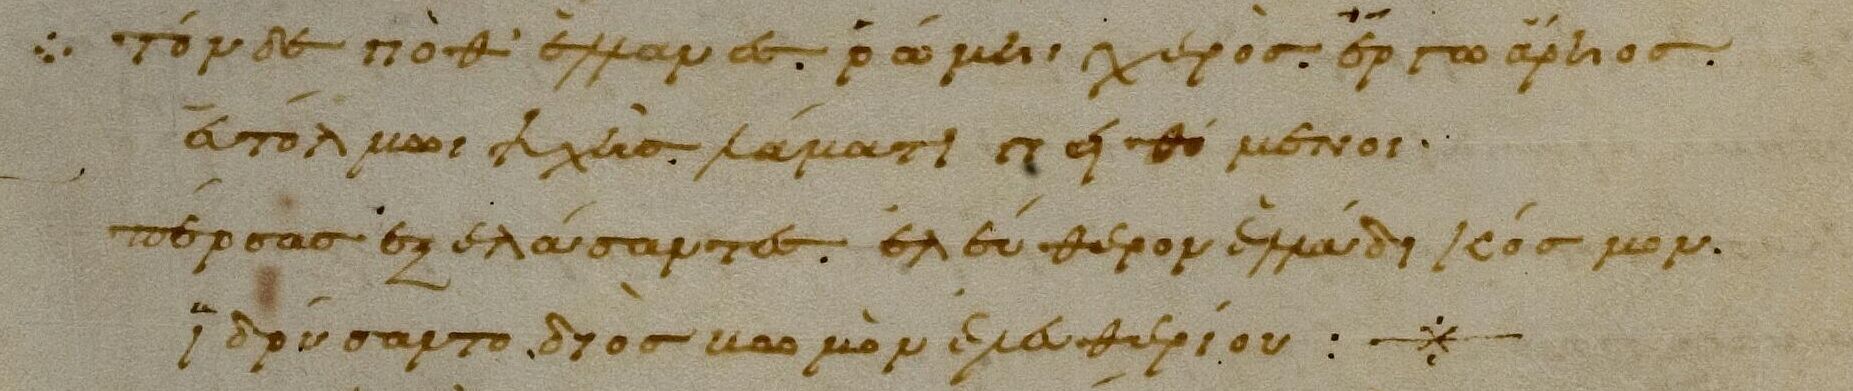 τόνδε ποθ' ἕλλανες. ῥώμηι χερὸς. ἔργω ἄρηος.
εὐτόλμωι ψυχῆς λάματι πειθόμενοι.
πέρσας ἐξελάσαντες. ἐλεύθερον ἑλλάδι κόσμον.
ἱδρύσαντο διὸς βωμὸν ἐλευθερίου :